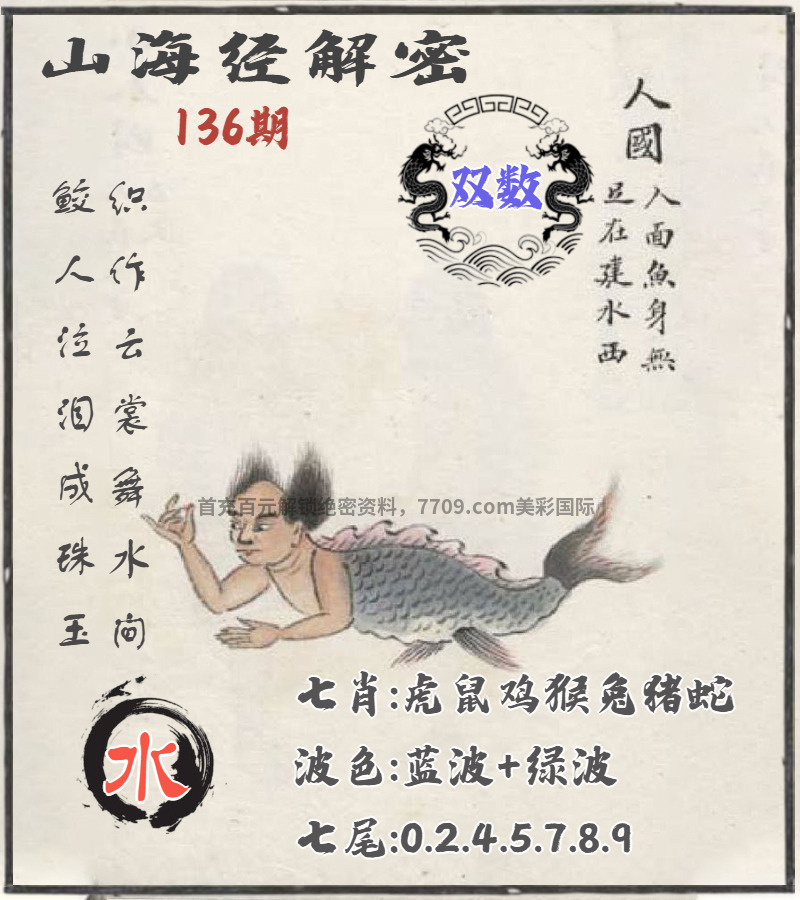 山海经解密
136期
双数
人國
人面魚身無
足在建水西
织作云裳舞水间
鲛人泣泪成珠玉
首充百元解锁绝密资料，7709.com美彩国际
水
七肖:虎鼠鸡猴兔猪蛇
波色:蓝波+绿波
七尾:0.2.4.5.7.8.9